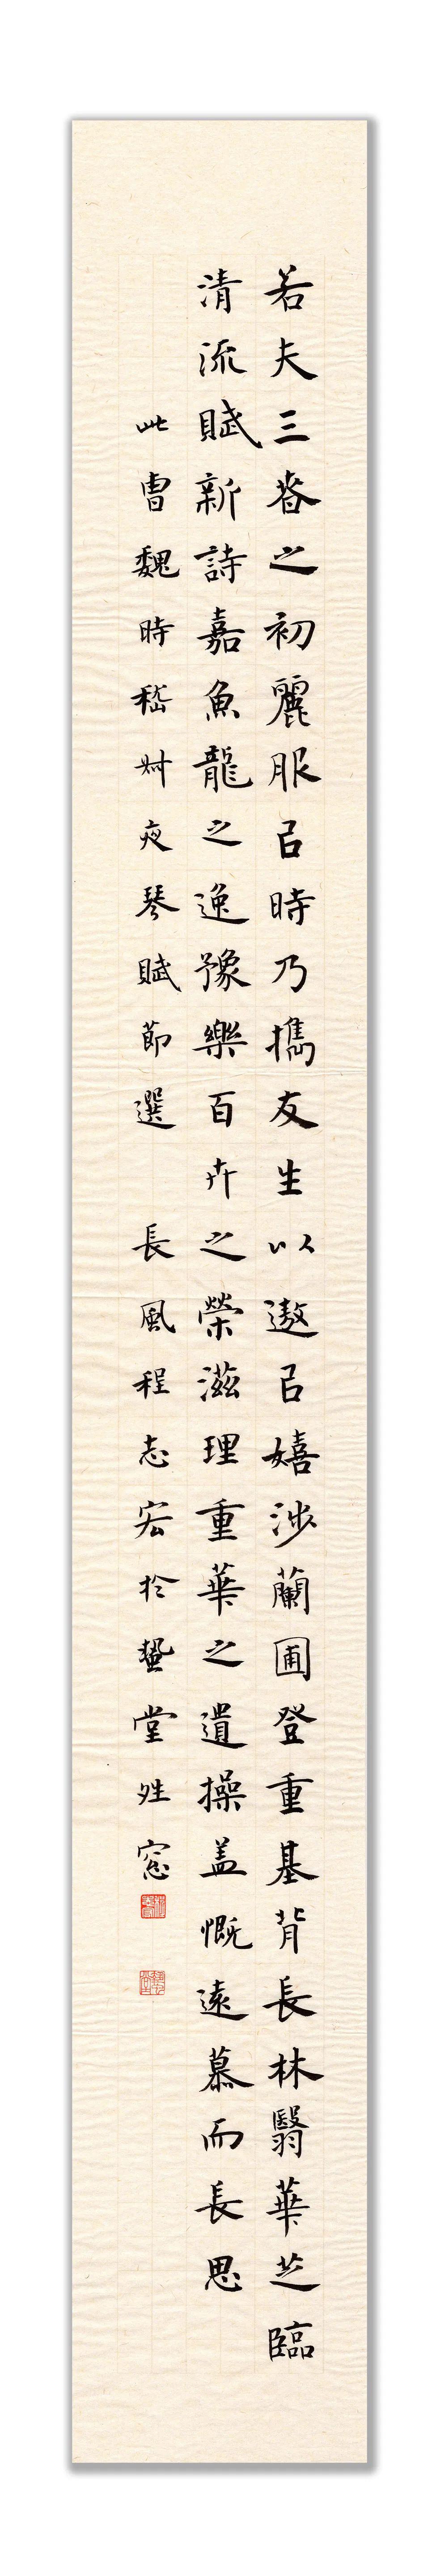 若夫三春之初麗服㠯時乃攜友生以遨㠯嬉涉蘭圃登重基背長林翳華芝臨
清流賦新詩嘉魚龍之逸豫樂百卉之榮滋理重華之遺操盖慨遠慕而長思
此曹魏時嵇叔夜琴賦節選 長風程志宏於蟄堂姓窓